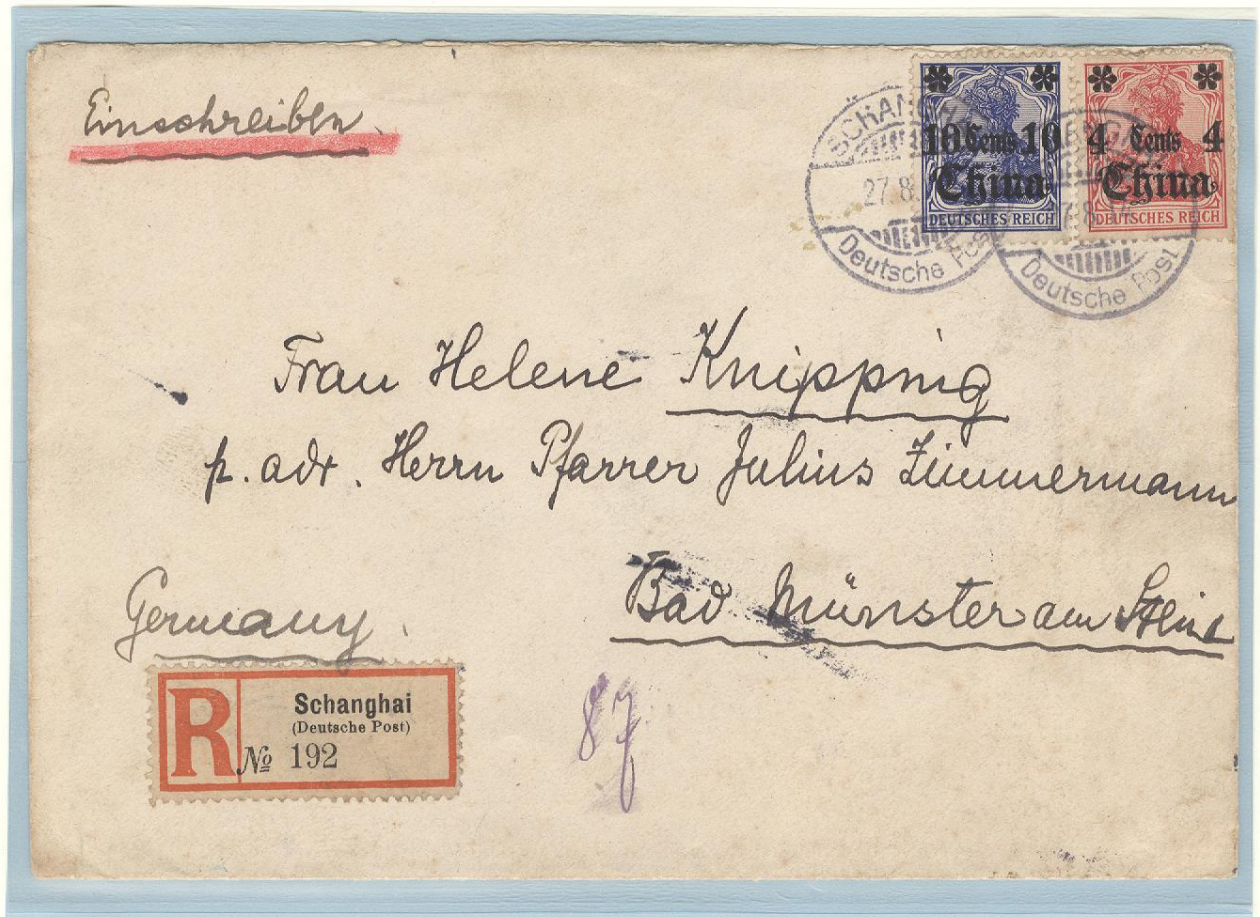 Einschreiben.
10 Cents 10
China
DEUTSCHES REICH
4 Cents 4
China
DEUTSCHES REICH
27.8
Deutsche Post
27.8
Deutsche Post
Frau Helene Knipping
p. adr. Herrn Pfarrer Julius Zimmermann
Bad Münster am Stein
Germany.
R
Schanghai
(Deutsche Post)
№ 192